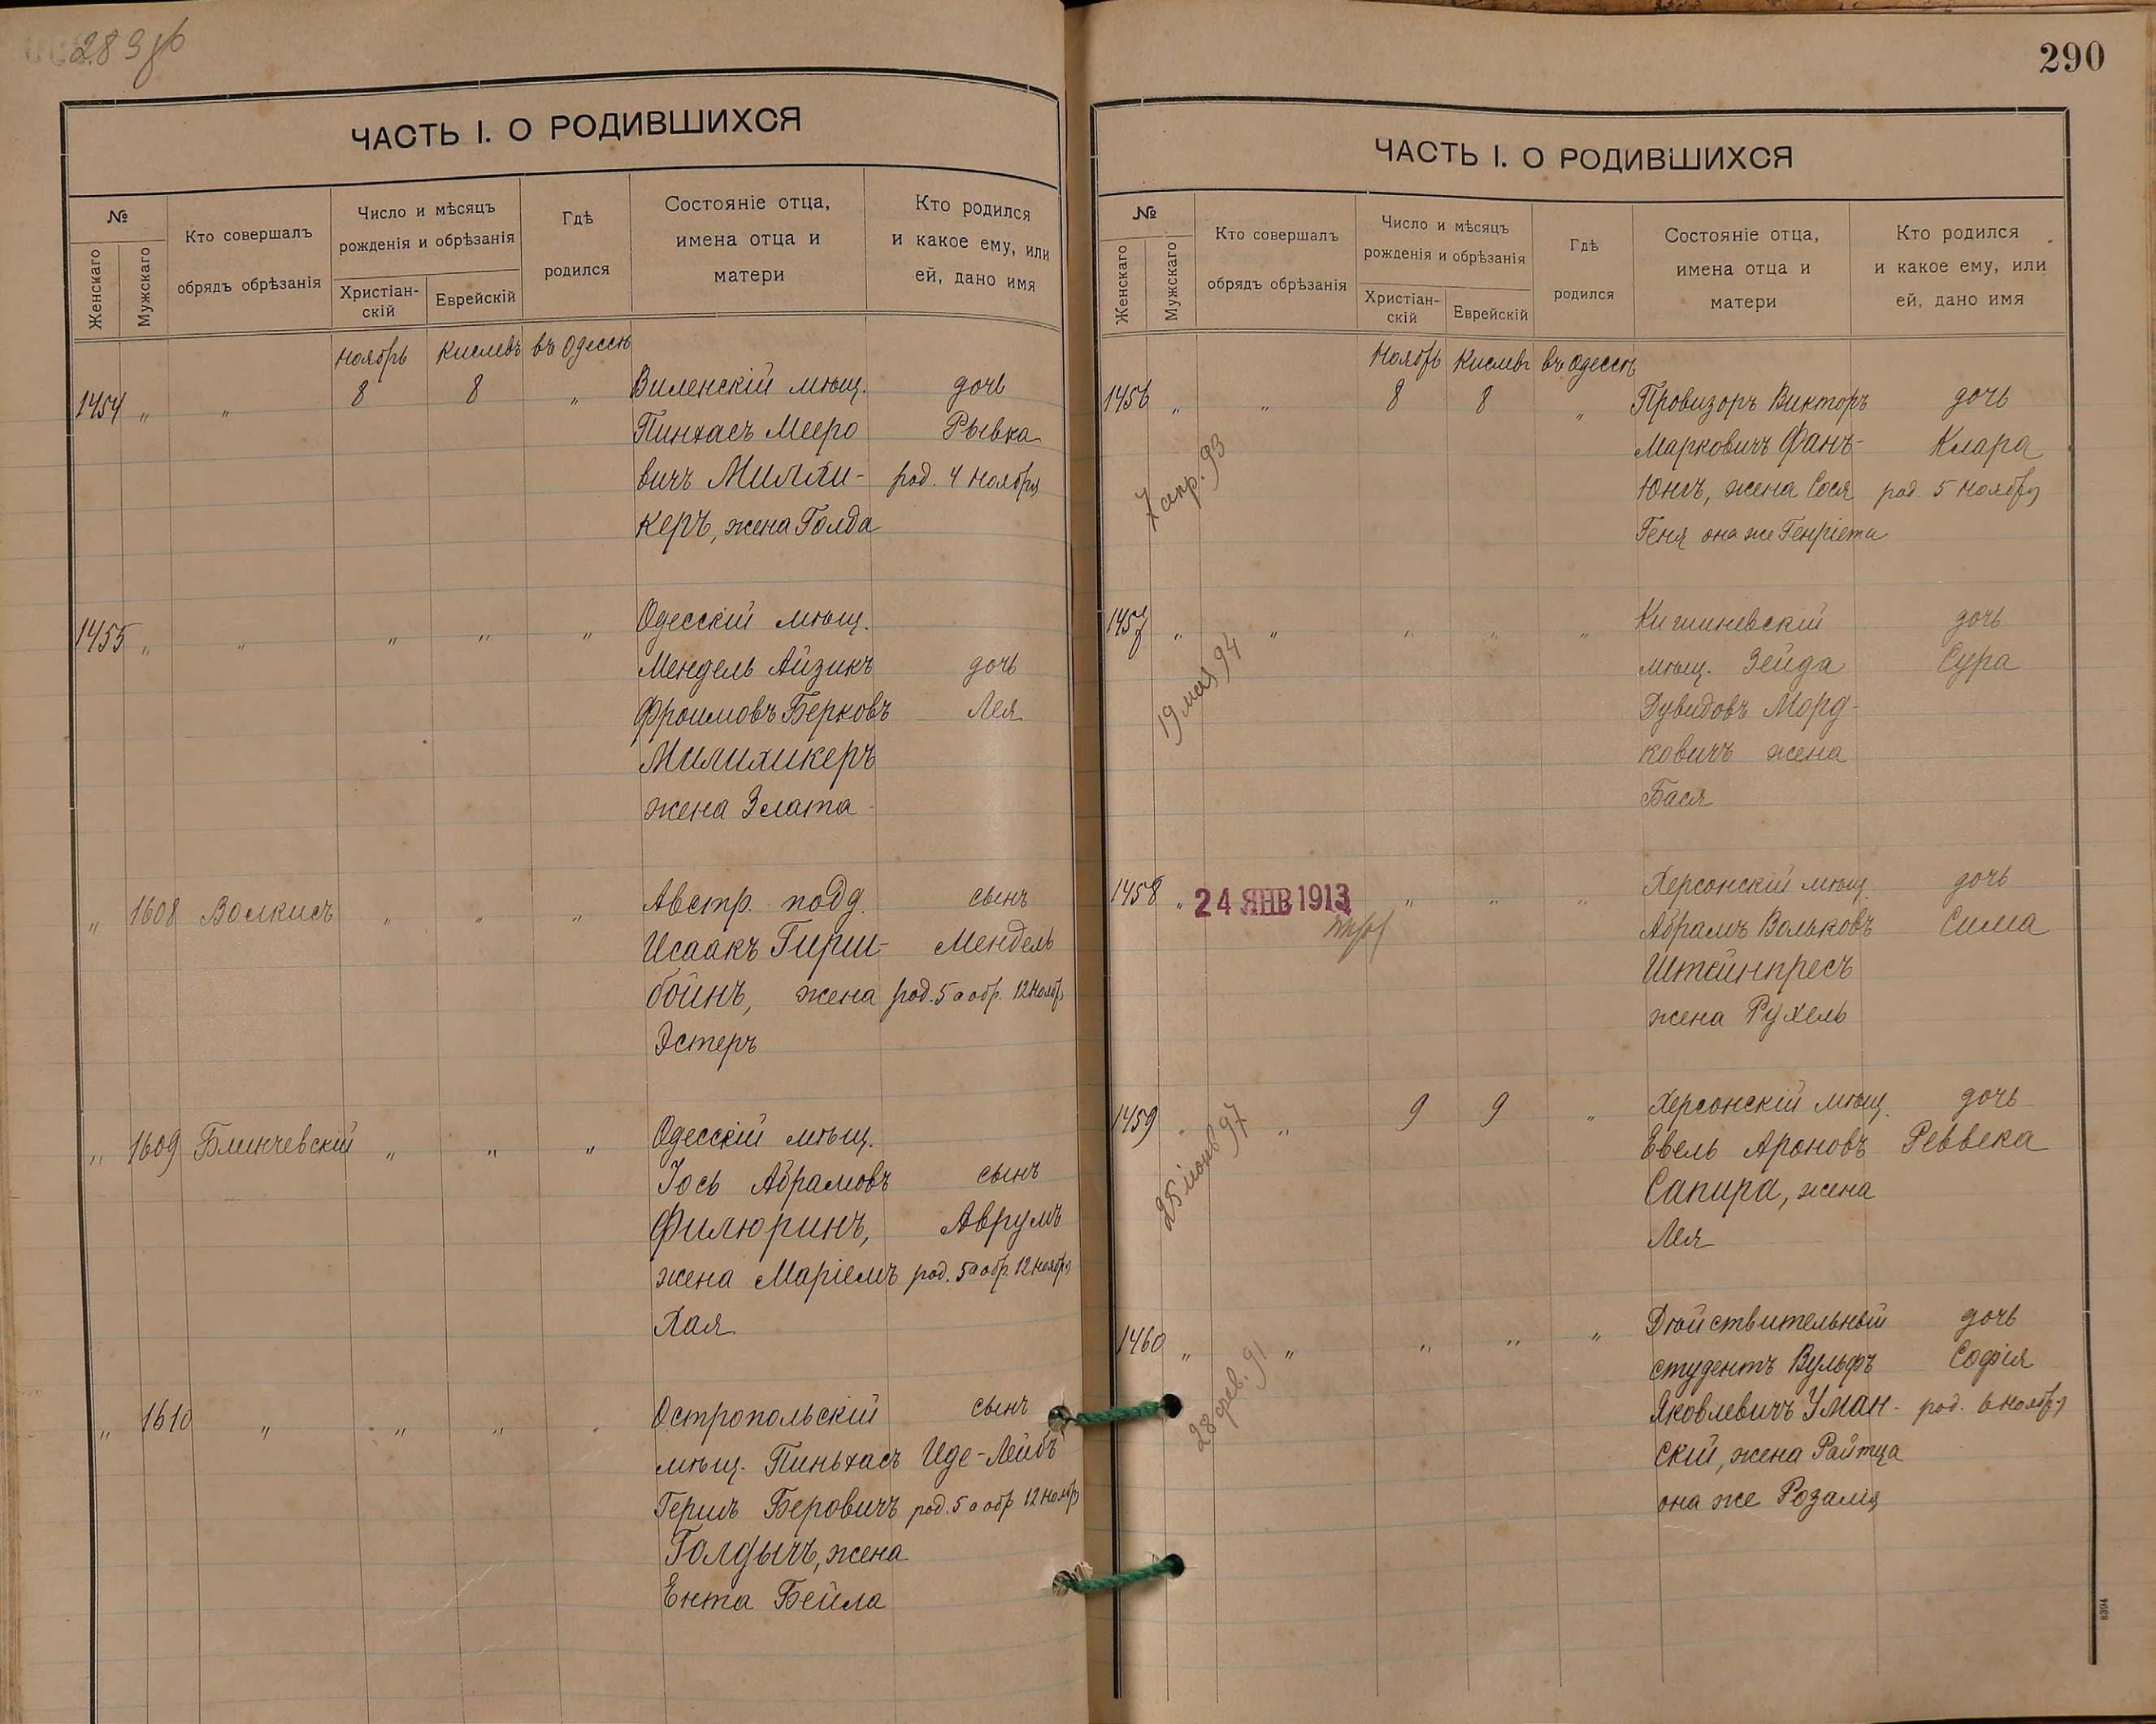 289 об
ЧАСТЬ I. О РОДИВШИХСЯ
№
Женскаго
Мужскаго
Кто совершалъ
обрядъ обрѣзанія
Число и мѣсяцъ
рожденія и обрѣзанія
Христіан-
скій
Еврейскій
Гдѣ
родился
Состояніе отца,
имена отца и
матери
Кто родился
и какое ему, или
ей, дано имя
Ноябрь Кислевъ въ Одессѣ
1454 „ „ 8 8 „ Виленскій мѣщ. дочь
Пинхасъ Мееро Рывка
вичъ род. 4 Ноября
керъ, жена Голда
1455 „ „ „ „ „ Одесскій мѣщ.
Мендель Айзикъ дочь
Фроимовъ Берковъ Лея
Милихикеръ
жена Злата
„ 1608 Волкисъ „ „ „ Австр. подд. сынъ
Исаакъ Гирш- Мендель
боинъ, жена род. 5 а обр. 12 Ноябр
Эстеръ
„ 1609 Блинчевскій „ „ „ Одесскій мѣщ.
Іось Абрамовъ сынъ
Филюринъ, Аврумъ
жена Маріемъ род. 5 а обр. 12 Ноябр
Хая
„ 1610 „ „ „ „ Остропольскій сынъ
мѣщ. Пиньхасъ Иде-Лейбъ
Гершъ Беровичъ род. 5 а обр 12 Ноябр
Голдычъ, жена
Ента Бейла
290
ЧАСТЬ I. О РОДИВШИХСЯ
№
Женскаго
Мужскаго
Кто совершалъ
обрядъ обрѣзанія
Число и мѣсяцъ
рожденія и обрѣзанія
Христіан-
скій
Еврейскій
Гдѣ
родился
Состояніе отца,
имена отца и
матери
Кто родился
и какое ему, или
ей, дано имя
Ноябрь Кислевъ въ Одессѣ
1456 „ „ 8 8 „ Провизоръ Викторъ дочь
Марковичъ Фанъ- Клара
Юнгъ, жена Сося род. 5 Ноября
Геня она же Генріета
7 апр. 93
1457 „ „ „ „ „ Кишиневскій дочь
мѣщ. Зейда Сура
Дувидовъ Морд-
ковичъ жена
Бася
19 мая 94
1458 „ 24 ЯНВ 1913 „ „ „ Херсонскій мѣщ. дочь
Абрамъ Вольковъ Сима
Штейнпресъ
жена Рухель
1459 „ „ 9 9 „ Херсонскій мѣщ. дочь
Евель Ароновъ Реввека
Сапира, жена
Лея
97
1460 „ „ „ „ „ Дѣйствительный дочь
студентъ Вульфъ Софія
Яковлевичъ Уман- род. 6 Ноябр
скій, жена Райтца
она же Розалія
28 фев. 91
8394